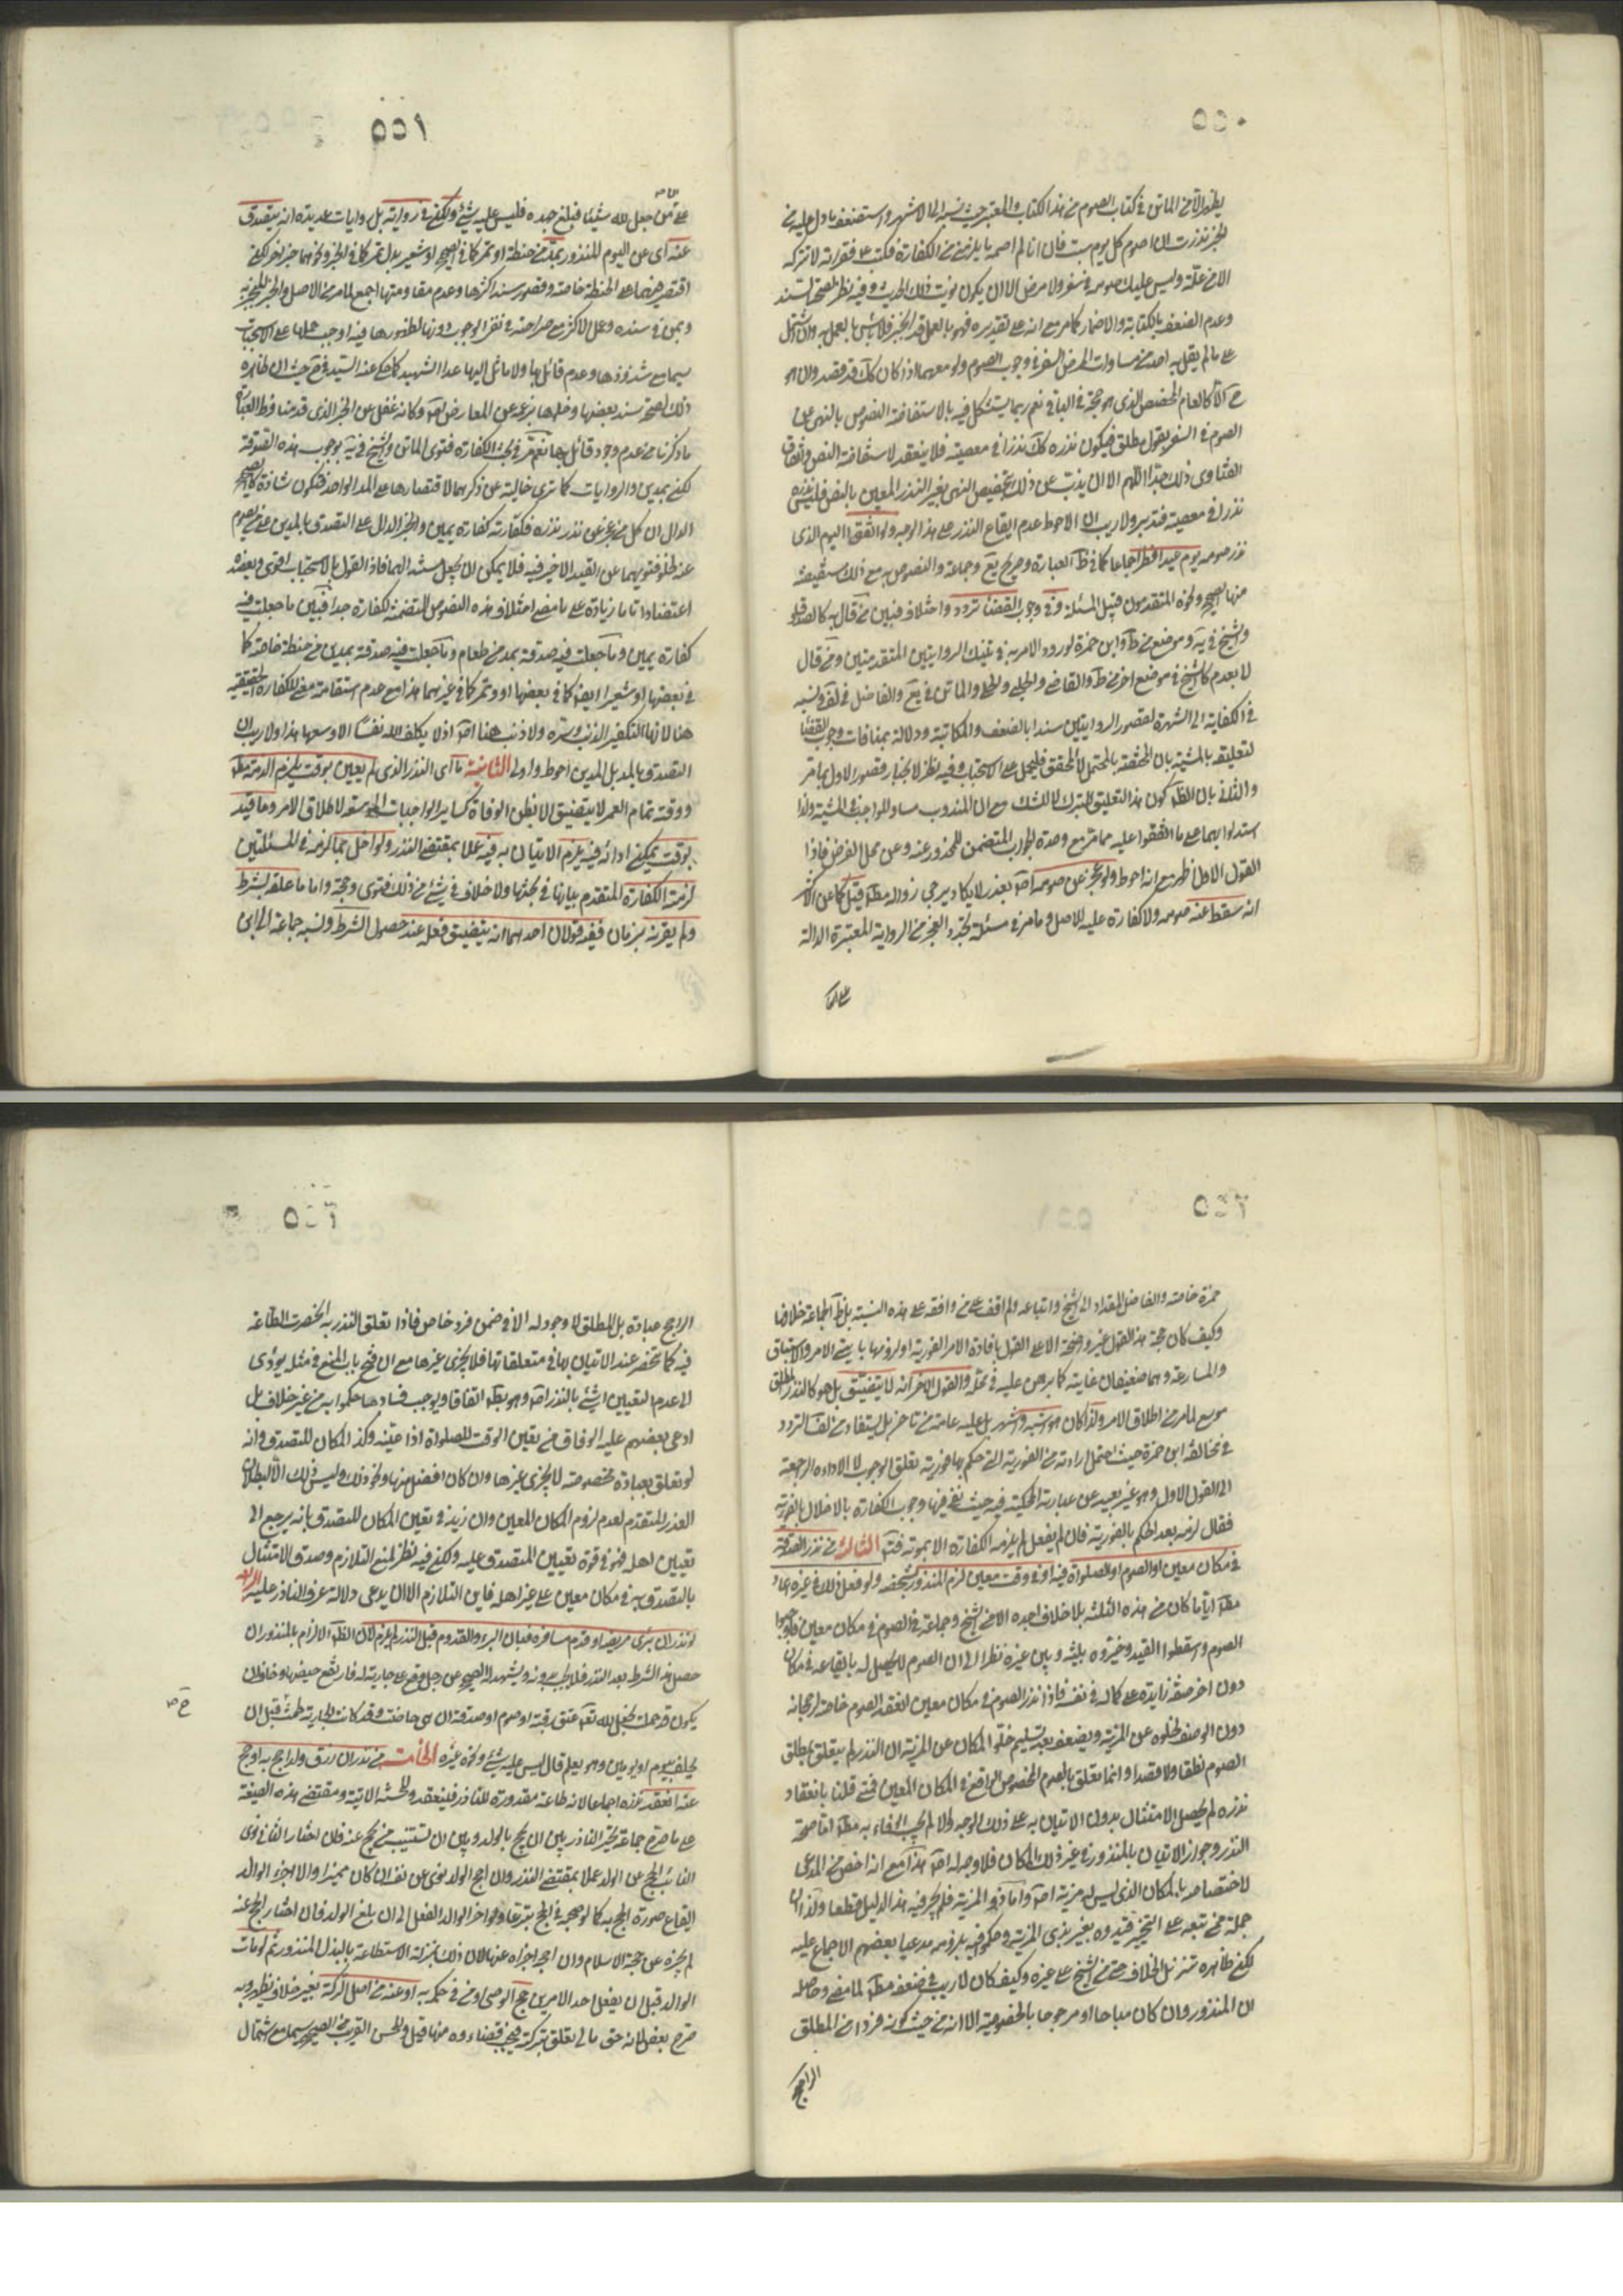 ٥٥٠
يظهر من الماتن في كتاب الصوم من هذا الكتاب والمعتبر حيث نسبه الى الاشهر واستضعف ما دل عليه من
الخبر نذرت ان اصوم كل يوم سبت فان انا لم اصمه ما يلزمني من الكفارة فكتب ع وقرأته لا تتركه
الا من علة وليس عليك صومه في سفر ولا مرض الا ان يكون نويت ذلك الحديث وفيه نظر لصحة السند
وعدم الضعف بالكتابة والاضمار كما مر مع انه على تقديره فهو بالعمل قد انجبر فلا باس بالعمل به وان اشتمل
على ما لم يقل به احد من مساوات المرض السفر في وجوب الصوم ولو معهما اذ كان كك قد قصد وان هو
ح الا كالعام المخصص الذي هو حجة في الباقي نعم ربما يستشكل فيه بالاستفاضة النصوص بالنهي عن
الصوم في السفر بقول مطلق فيكون نذره كك نذرا في معصية فلا ينعقد لاستفاضة النص واتفاق
الفتاوى بذلك جدا اللهم الا ان يذب عن ذلك بتخصيص النهي بغير النذر المعين بالنص فليس نذره
نذرا في معصية فتدبر ولا ريب ان الاحوط عدم ايقاع النذر على هذا الوجه ولو اتفق اليوم الذي
نذر صومه يوم عيد افطر اجماعا كما في ظ العبارة وصريح يع وجماعة والنصوص به مع ذلك مستفيضة
منها الصحيح ونحوه المتقدمون قبيل المسئلة وفي وجوب القضاء تردد واختلاف فبين من قال به كالصدوق
والشيخ في ية وموضع من ط وابن حمزة لورود الامر به في تينك الروايتين المتقدمتين ومن قال
لا بعدم كالشيخ في موضع اخر من ط والقاضي والحلبي والحلي والماتن في يع والفاضل في لف ونسبه
في الكفاية الى الشهرة لقصور الروايتين سندا بالضعف والمكاتبة ودلالة بمنافات وجوب القضاء
لتعليقه بالمشية بان المختصة بالمحتمل لا المحقق فليحمل على الاستحباب وفيه نظر لانجبار قصور الاول بما مر
والثاني بان الظ كون هذا التعليق للتبرك لا للشك مع ان المندوب مساو للواجب في المشية ولذا
استدلوا بهما على ما اتفقوا عليه مما مر مع وحدة الجواب المتضمن للمحذور عنه وعن محل الفرض فاذا
القول الاول اظهر مع انه احوط ولو عجز عن صومه اص بعذر لا يكاد يرجى زواله مط قيل كما عن الاكثر
انه سقط عنه صومه ولا كفارة عليه للاصل وما مر في مسئلة تجدد العجز من الرواية المعتبرة الدالة
على ان
٥٥١
على ان من جعل لله شيئا فبلغ جهده فليس عليه شيئ ولكن في رواية بل روايات عديدة انه يتصدق
عنه اى عن اليوم المنذور بمد من حنطة او تمر كما في الصحيح او شعير بدل تمر كما في الخبر ونحوهما خبر اخر لكن
اقتصر فيهما على الحنطة خاصة وقصور سند اكثرها وعدم مقاومتها اجمع لما مر من الاصل والخبر المنجبر به
وبمن في سنده وعمل الاكثر مع صراحته في نفي الوجوب دونها لظهورها فيه اوجب حملها على الاستحباب
سيما مع شذوذها وعدم قائل بها ولا مائل اليها عدا الشهيد كما حكى عنه السيد في ح حيث ان ظاهره
ذلك لصحة سند بعضها وخلوها بزعمه عن المعارض اص وكانه غفل عن الخبر الذي قدمنا وظ العبارة
ما ذكرنا من عدم وجود قائل بها نعم مر في بحث الكفارة فتوى الماتن والشيخ في ية بوجوب هذه الصدقة
لكن بمدين والروايات كما ترى خالية عن ذكرهما لاقتصارها على المد الواحد فتكون شاذة كالصحيح
الدال ان كل من عجز عن نذر نذره فكفارته كفارة يمين والخبر الدال على التصدق بالمدين على من يصوم
عنه لخلو فتويهما عن القيد الاخير فيه فلا يمكن ان يجعل مستند لهما فاذا القول بالاستحباب اقوى ويعضده
اعتضادا تاما زيادة على ما مضى اختلاف هذه النصوص المتضمنة لكفارة جدا فبين ما جعلت فيه
كفارة يمين وما جعلت فيه صدقة بمد من طعام وما جعلت فيه صدقة بمدين من حنطة خاصة كما
في بعضها او شعيرا ايضا كما في بعضها او وتمر كما في غيرهما هذا مع عدم استقامة معنى للكفارة الحقيقية
هنا لانها لتكفير الذنب وستره ولا ذنب هنا اص اذ لا يكلف الله نفسا الا وسعها هذا ولا ريب ان
التصدق بالمد بل المدين احوط واولى الثانية ما اى النذر الذي لم يعين بوقت يلزم الذمة مط
ووقته تمام العمر لا يتضيق الا بظن الوفاة كساير الواجبات الموسعة لاطلاق الامر وما قيد
بوقت يمكن ادائه فيه يلزم الاتيان به فيه عملا بمقتضى النذر ولو اخل بما لزمه في المسئلتين
لزمه الكفارة المتقدم بيانها في بحثها ولا خلاف في شيئ من ذلك فتوى وحجة واما ما علقه بشرط
ولم يقرنه بزمان ففيه قولان احدهما انه يتضيق فعله عند حصول الشرط ونسبه جماعة الى ابن
٥٥٢
حمزة خاصة والفاضل المقداد الى الشيخ واتباعه ولم اقف على من وافقه على هذه النسبة بل ظ الجماعة خلافها
وكيف كان حجة هذا القول غير واضحة الا على القول بافادة الامر الفورية او لزومها بايتي الامر والاستباق
والمسارعة وهما ضعيفان غايته كما برهن عليه في محله والقول الاخر انه لا يتضيق بل هو كالنذر المطلق
موسع لما مر من اطلاق الامر ولذا كان هو اشبه واشهر بل عليه عامة من تاخر بل يستفاد من لف التردد
في مخالفة ابن حمزة حيث احتمل ارادته من الفورية التي حكم بها فورية تعلق الوجوب لا الاداء الراجعة
الى القول الاول وهو غير بعيد عن عبارته المحكية فيه حيث نفى فيها وجوب الكفارة بالاخلال بالفورية
فقال لزمه بعد الحكم بالفورية فان لم يفعل لم يلزمه الكفارة الا بموته فت الثالثة من نذر الصدقة
في مكان معين او الصوم او الصلوة فيه او في وقت معين لزم المنذور بشخصه ولو فعل ذلك في غيره اعاد
مط ايا ما كان من هذه الثلثة بلا خلاف اجده الا من الشيخ وجماعة في الصوم في مكان معين فاوجبوا
الصوم واسقطوا القيد وخيروه بينه وبين غيره نظرا الى ان الصوم لا يحصل له بايقاعه في مكان
دون اخر صفة زايدة على كماله في نفسه فاذا نذر الصوم في مكان معين انعقد الصوم خاصة لرجحانه
دون الوصف لخلوه عن المزية ويضعف بعد تسليم خلو المكان عن المزية ان النذر لم يتعلق بمطلق
الصوم لفظا ولا قصدا وانما تعلق بالصوم المخصوص الواقع في المكان المعين فمتى قلنا بانعقاد
نذره لم يحصل الامتثال بدون الاتيان به على ذلك الوجه والا لم يجب الوفاء به مط اما صحة
النذر وجواز الاتيان بالمنذور في غير ذلك المكان فلا وجه له اص هذا مع انه اخص من المدعى
لاختصاصه بالمكان الذي ليس له مزية اص واما ذو المزية فلم يجر فيه هذا الدليل قطعا ولذا ان
جملة ممن تبعه على التخيير قيدوه بغير ذي المزية وحكموا فيه بلزومه مدعيا بعضهم الاجماع عليه
لكن ظاهره تنزيل الخلاف حتى من الشيخ على غيره وكيف كان لا ريب في ضعفه مط لما مضى وحاصله
ان المنذور وان كان مباحا او مرجوحا بالخصوصية الا انه من حيث كونه فردا من المطلق
الراجح
الراجح عبادة بل المطلق لا وجود له الا في ضمن فرد خاص فاذا تعلق النذر به انحصرت الطاعة
فيه كما تنحصر عند الاتيان بها في متعلقاتها فلا يجزى غيرها مع ان فتح باب المنع في مثله يؤدى
الى عدم لتعيين شيئ بالنذر اص وهو بط اتفاقا ويوجب فسادها حكموا به من غير خلاف بل
ادعى بعضهم عليه الوفاق من تعين الوقت للصلواة اذا عينه وكذا المكان للتصدق وانه
لو تعلق بعبادة مخصوصة لا يجزى غيرها وان كان افضل منها ونحو ذلك وليس ذلك الا لبطلان
العذر المتقدم لعدم لزوم المكان المعين وان زيد في تعين المكان للتصدق بانه يرجع الى
تعيين اهله فهو في قوة تعيين المتصدق عليه ولكن فيه نظر لمنع التلازم وصدق الامتثال
بالتصدق به في مكان معين على غير اهله فاين التلازم الا ان يدعى دلالة عرف الناذر عليه الرابعة
لو نذر ان برئ مريضه او قدم مسافره فبان البرء والقدوم قبل النذر لم يلزم لان الظ الالزام بالمنذور ان
حصل هذا الشرط بعد النذر فلا يجب بدونه ويشهد له الصحيح عن رجل وقع على جارية له فارتفع حيضها وخاف ان
يكون قد حملت فجعل لله تع عتق رقبة او صوم او صدقة ان هي حاضت وقد كانت الجارية طمثت قبل ان
يحلف بيوم او يومين وهو يعلم قال ليس عليه شيئ ونحوه غيره الخامسة من نذر ان رزق ولدا حج به او حج
عنه انعقد نذره اجماعا لانه طاعة مقدورة للناذر فلينعقد وللحسنة الاتية ومقتضى هذه الصيغة
على ما صرح جماعة تخير الناذر بين ان يحج بالولد وبين ان يستنيب من يحج عنه فان اختار الثاني نوى
النائب الحج عن الولد عملا بمقتضى النذر وان احج الولد نوى عن نفسه ان كان مميزا والا اجزء الوالد
ايقاع صورة الحج به كما لو صحبه في الحج تبرعا ولو اخر الوالد الفعل الى ان بلغ الولد فان اختار الحج عنه
لم يجزه عن حجة الاسلام وان احجه اجزاه عنها لان ذلك بمنزلة الاستطاعة بالبذل المنذور ثم لو مات
الوالد قبل ان يفعل احد الامرين حج الوصي او من في حكمه به او عنه من اصل التركة بغير خلاف يظهر وبه
صرح بعض لانه حق مالي تعلق بتركته فيجب قضاءه منها قيل وللحسن القريب من الصحيح سيما مع شتمال